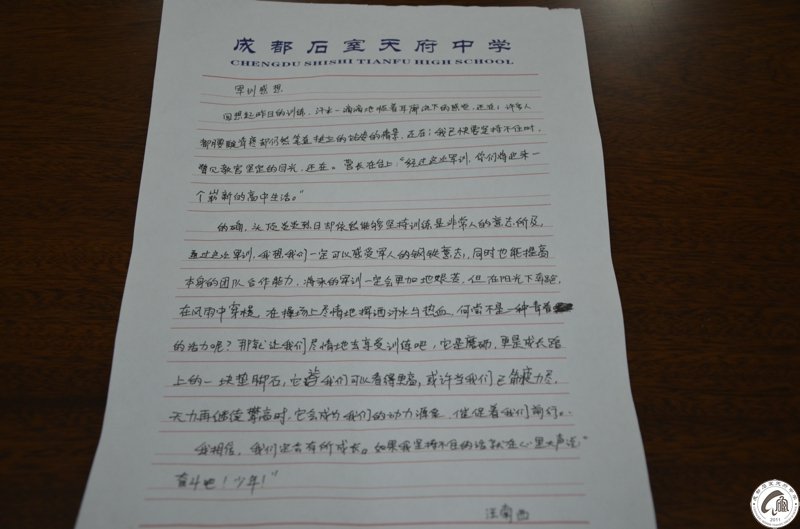 成都石室天府中学
CHENGDU SHISHI TIANFU HIGH SCHOOL
军训感想
回想起昨日的训练,汗水一滴滴地临着耳廓流下的感觉,还在;许多人
都腰酸背疼却仍然笔直挺立的站姿的情景,还在;我已快要坚持不住时,
瞥见教官坚定的目光,还在。营长在台上:“经过这次军训,你们将迎来一
个崭新的高中生活。”
的确,头顶炎炎烈日却依然能够坚持训练是非常人的意志所及,
通过这次军训,我想我们一定可以感受军人的钢铁意志,同时也能提高
本身的团队合作能力,将来的军训一定会更加地艰苦,但在阳光下奔跑,
在风雨中穿梭,在操场上尽情地挥洒汗水与热血,何尝不是一种青春
的活力呢?那就让我们尽情地去享受训练吧,它是磨砺,更是成长路
上的一块垫脚石,它替我们可以看得更高,或许当我们已筋疲力尽,
无力再继续攀高时,它会成为我们的动力源泉,催促着我们前行。
我相信,我们定会有所成长。如果我坚持不住的话就在心里大声说:“
奋斗吧!少年!”
汪南西
成都石室天府中学
2011